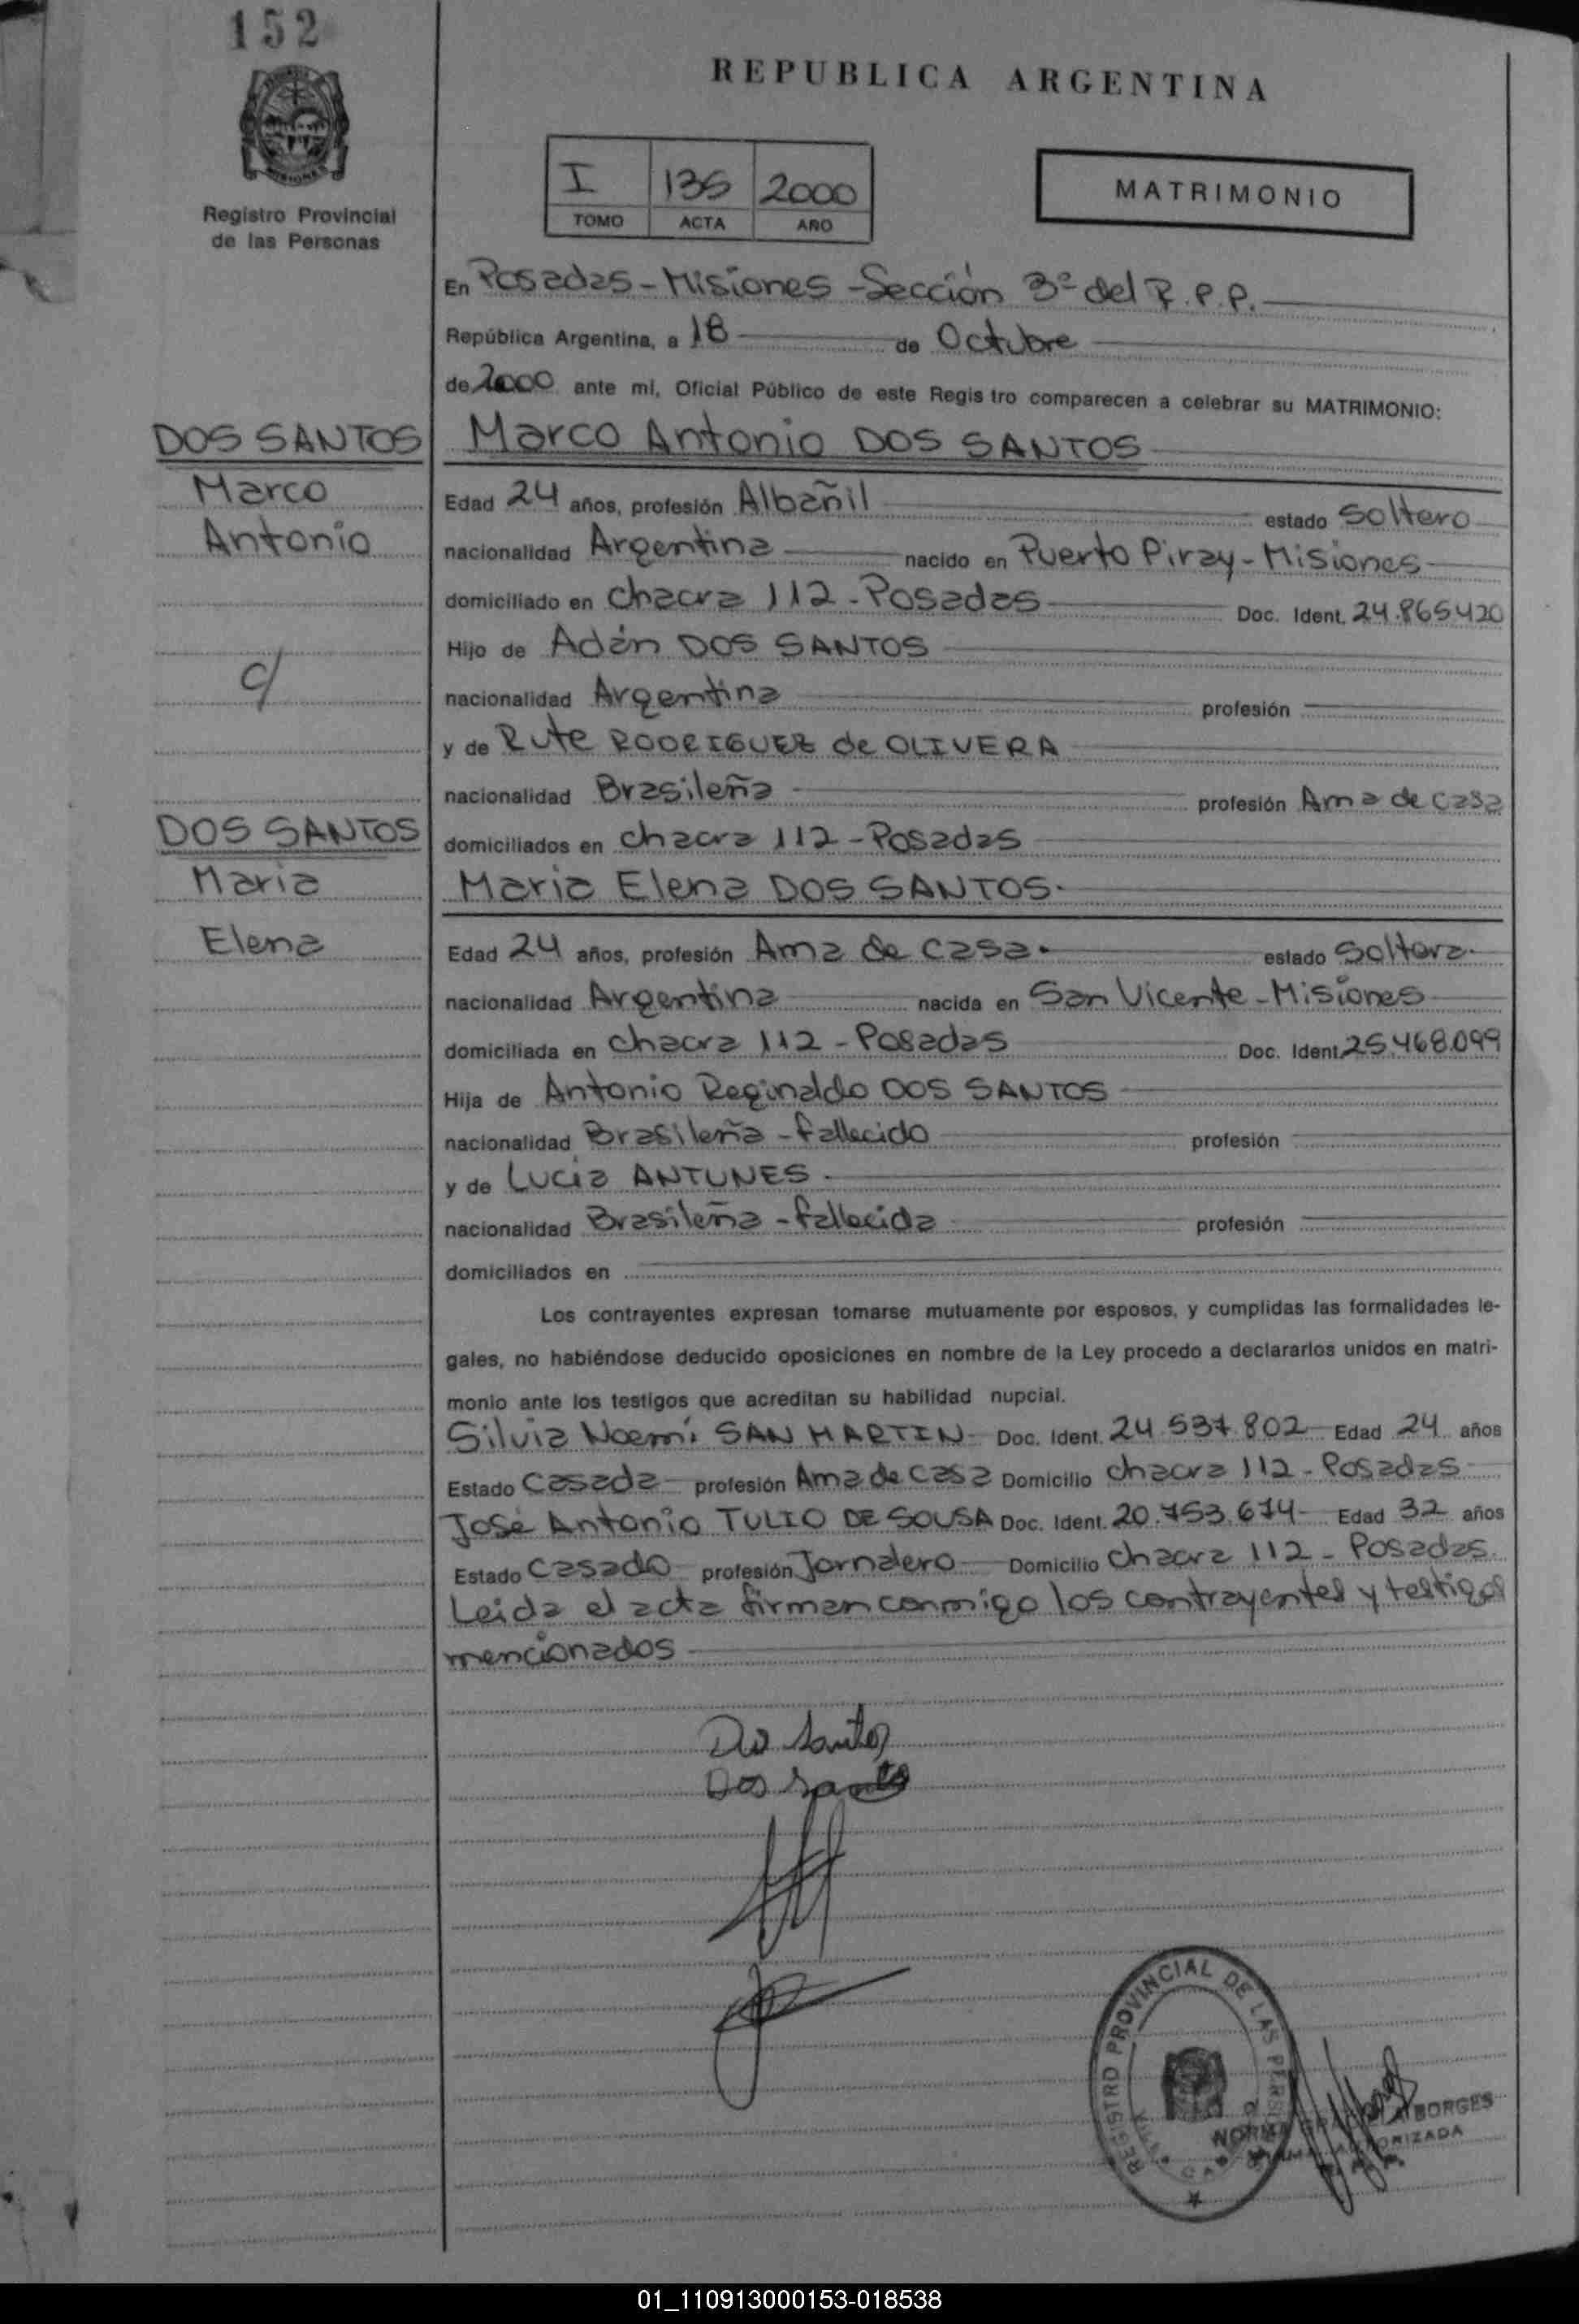 152
REPUBLICA ARGENTINA
Registro Provincial
de las Personas
I 136 2000
TOMO ACTA AÑO
MATRIMONIO
En Posadas - Misiones - Sección 3ª del R.P.P.
República Argentina, a 18 de Octubre
de 2000 ante mi, Oficial Público de este Regis tro comparecen a celebrar su MATRIMONIO:
DOS SANTOS
Marco
Antonio
c/
DOS SANTOS
Maria
Elena
Marco Antonio DOS SANTOS
Edad 24 años, profesión Albañil estado Soltero
nacionalidad Argentina nacido en Puerto Piray - Misiones
domiciliado en chacra 112 - Posadas Doc. Ident. 24.865420
Hijo de Adán DOS SANTOS
nacionalidad Argentina profesión
y de Rute RODRIGUEZ de OLIVERA
nacionalidad Brasileña profesión Ama de casa
domiciliados en chacra 112 - Posadas
Maria Elena DOS SANTOS.
Edad 24 años, profesión Ama de casa. estado Soltera.
nacionalidad Argentina nacida en San Vicente - Misiones
domiciliada en chacra 112 - Posadas Doc. Ident. 25.468.099
Hija de Antonio Reginaldo DOS SANTOS
nacionalidad Brasileña - fallecido profesión
y de Lucía ANTUNES.
nacionalidad Brasileña - fallecida profesión
domiciliados en
Los contrayentes expresan tomarse mutuamente por esposos, y cumplidas las formalidades le-
gales, no habiéndose deducido oposiciones en nombre de la Ley procedo a declararlos unidos en matri-
monio ante los testigos que acreditan su habilidad nupcial.
Silvia Noemí SAN MARTIN Doc. Ident. 24.537.802 Edad 24 años
Estado Casada profesión Ama de casa Domicilio chacra 112 - Posadas
José Antonio TULIO DE SOUSA Doc. Ident. 20.753.674 Edad 32 años
Estado Casado profesión Jornalero Domicilio chacra 112 - Posadas.
Leida el acta firman conmigo los contrayentes y testigos
mencionados
Dos Santos
Dos Santos
REGISTRO PROVINCIAL DE LAS PERSONAS
NORMA GRACIELA BORGES
AUTORIZADA
01_110913000153-018538